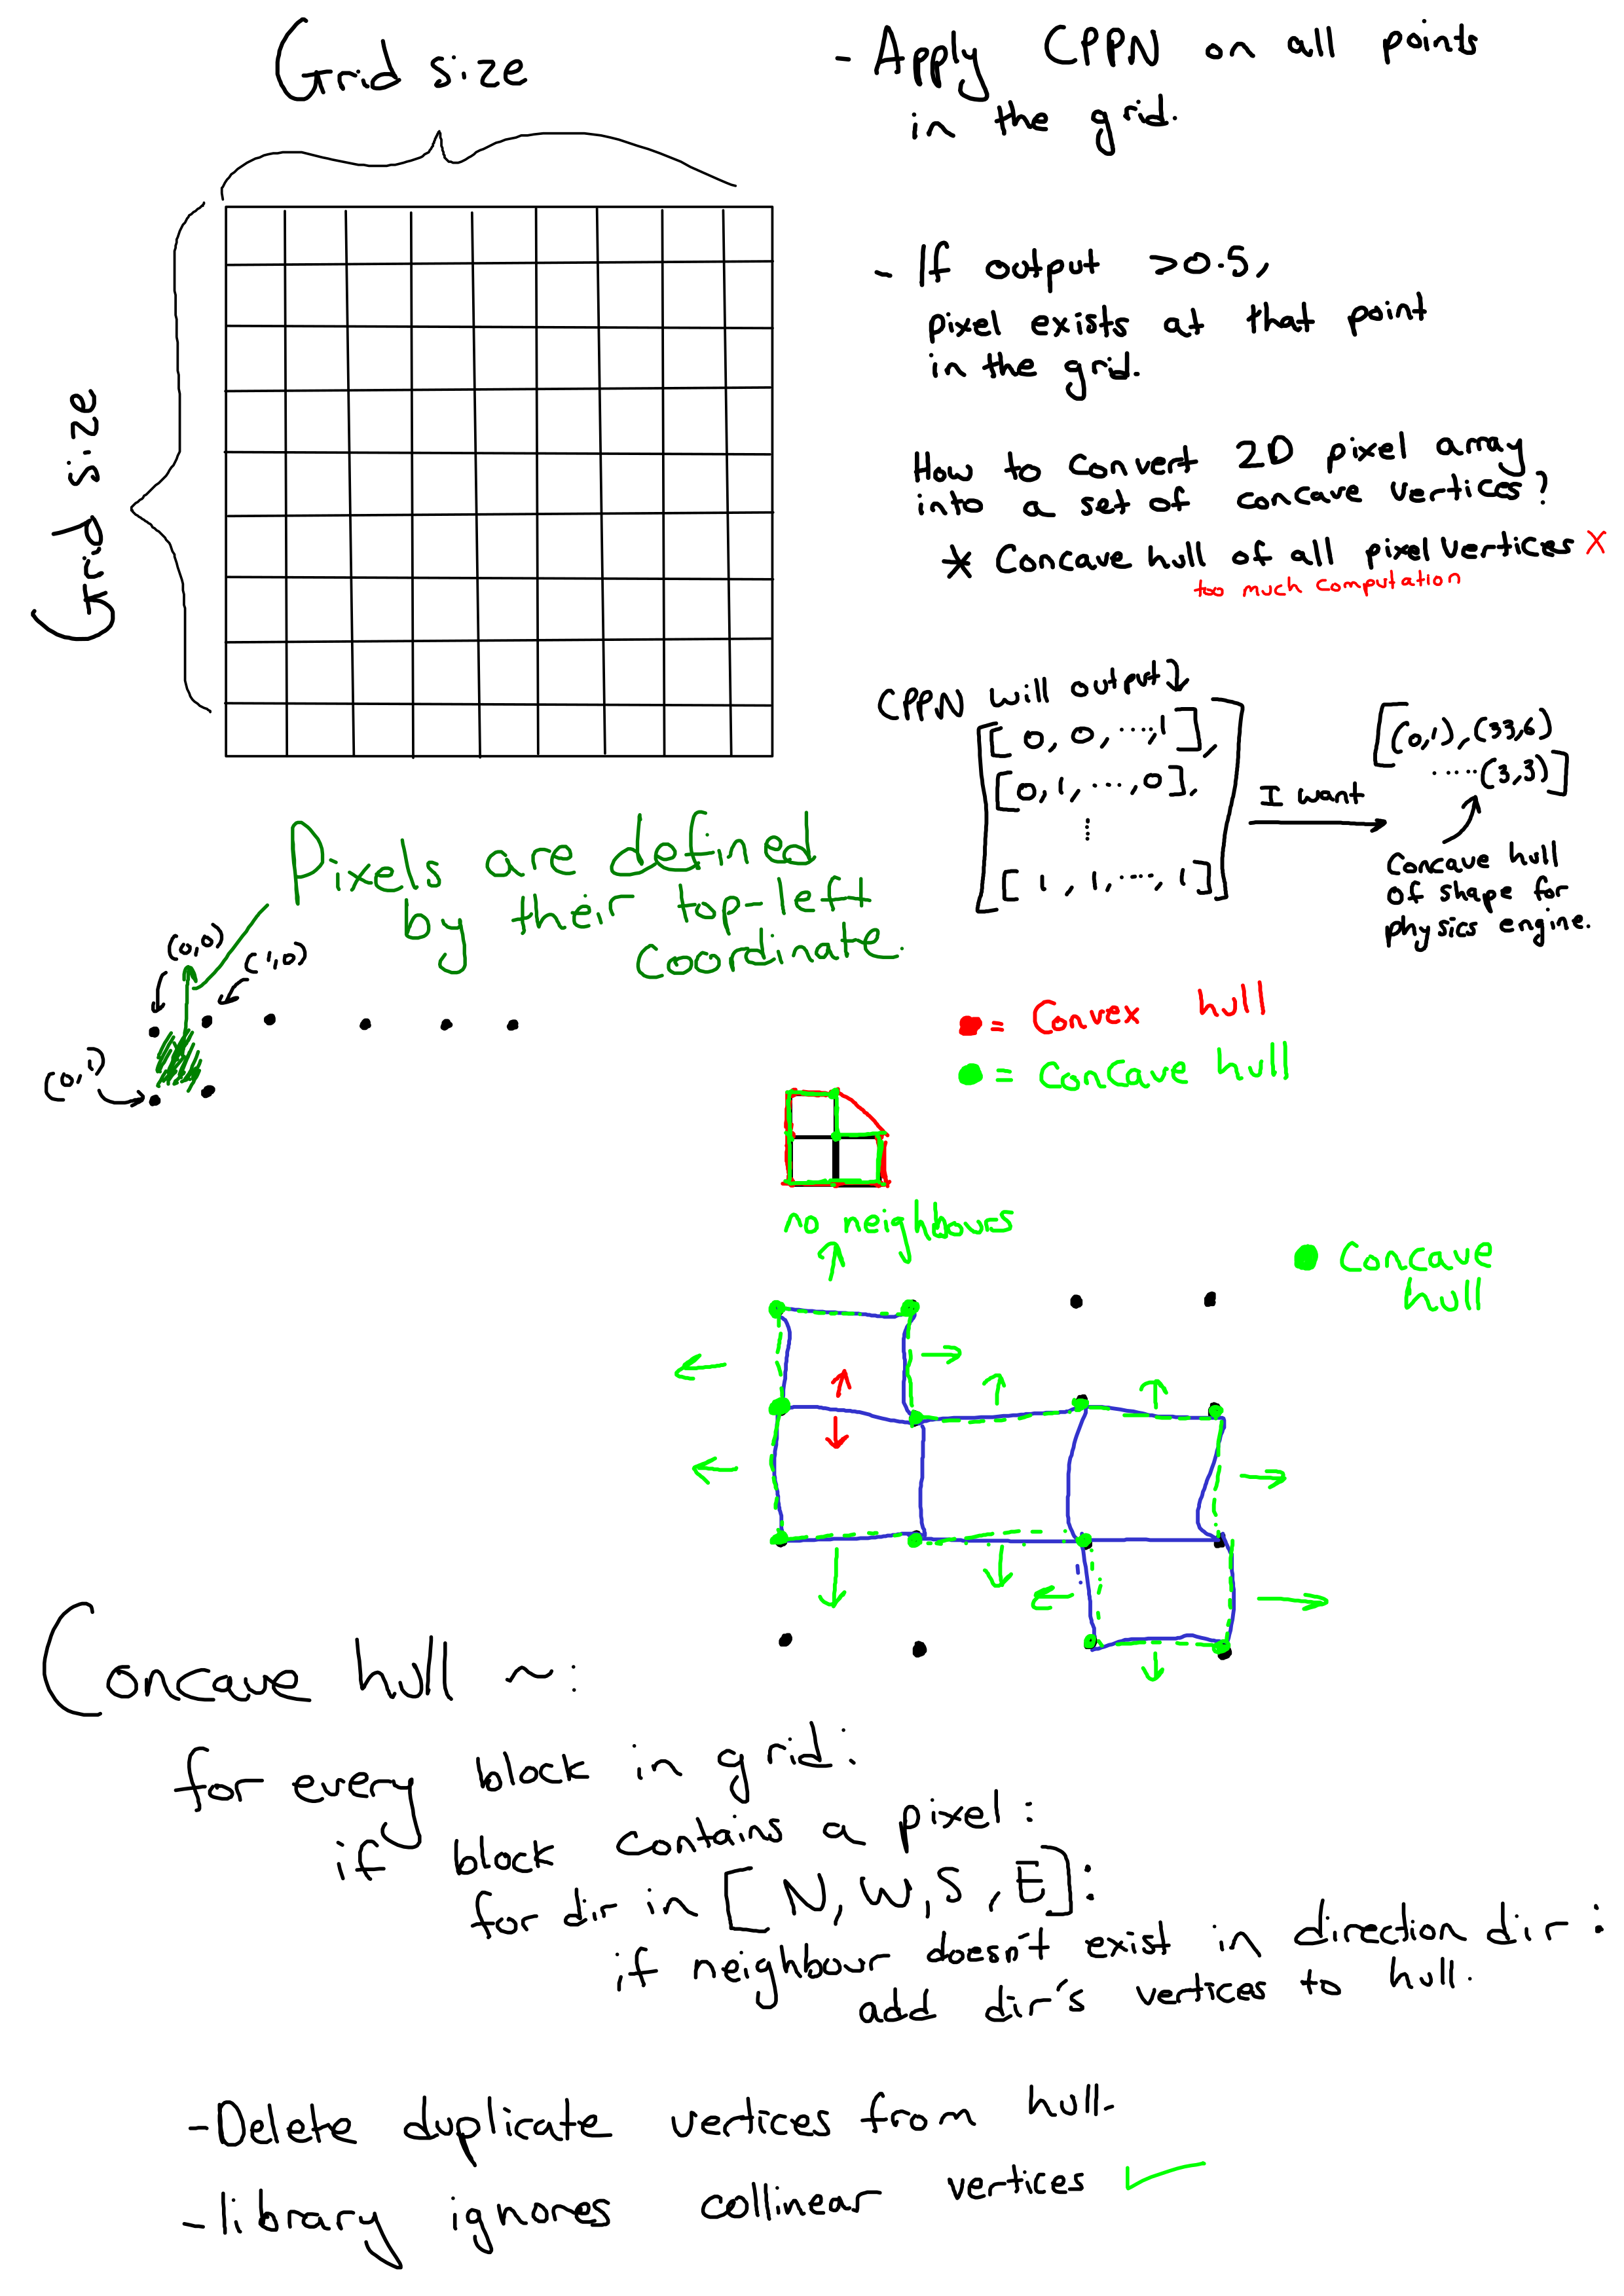 Grid size
Grid size
- Apply CPPN on all points
in the grid.
- If output >0.5,
pixel exists at that point
in the grid.
How to convert 2D pixel array
into a set of concave vertices?
* Concave hull of all pixel vertices X
too much computation
CPPN will output
[[0, 0, ...., 1],
[0, 1, ...., 0],
⋮
[1, 1, ...., 1]]
I want
[(0,1), (33,6)
.....(3,3)]
Concave hull
of shape for
physics engine.
Pixels are defined
by their top-left
coordinate.
(0,0)
(1,0)
(0,1)
= Convex hull
= Concave hull
no neighbours
Concave
hull
Concave hull ~:
for every block in grid:
if block contains a pixel:
for dir in [N, W, S, E]:
if neighbour doesn't exist in direction dir:
add dir's vertices to hull.
- Delete duplicate vertices from hull.
- library ignores collinear vertices ✓